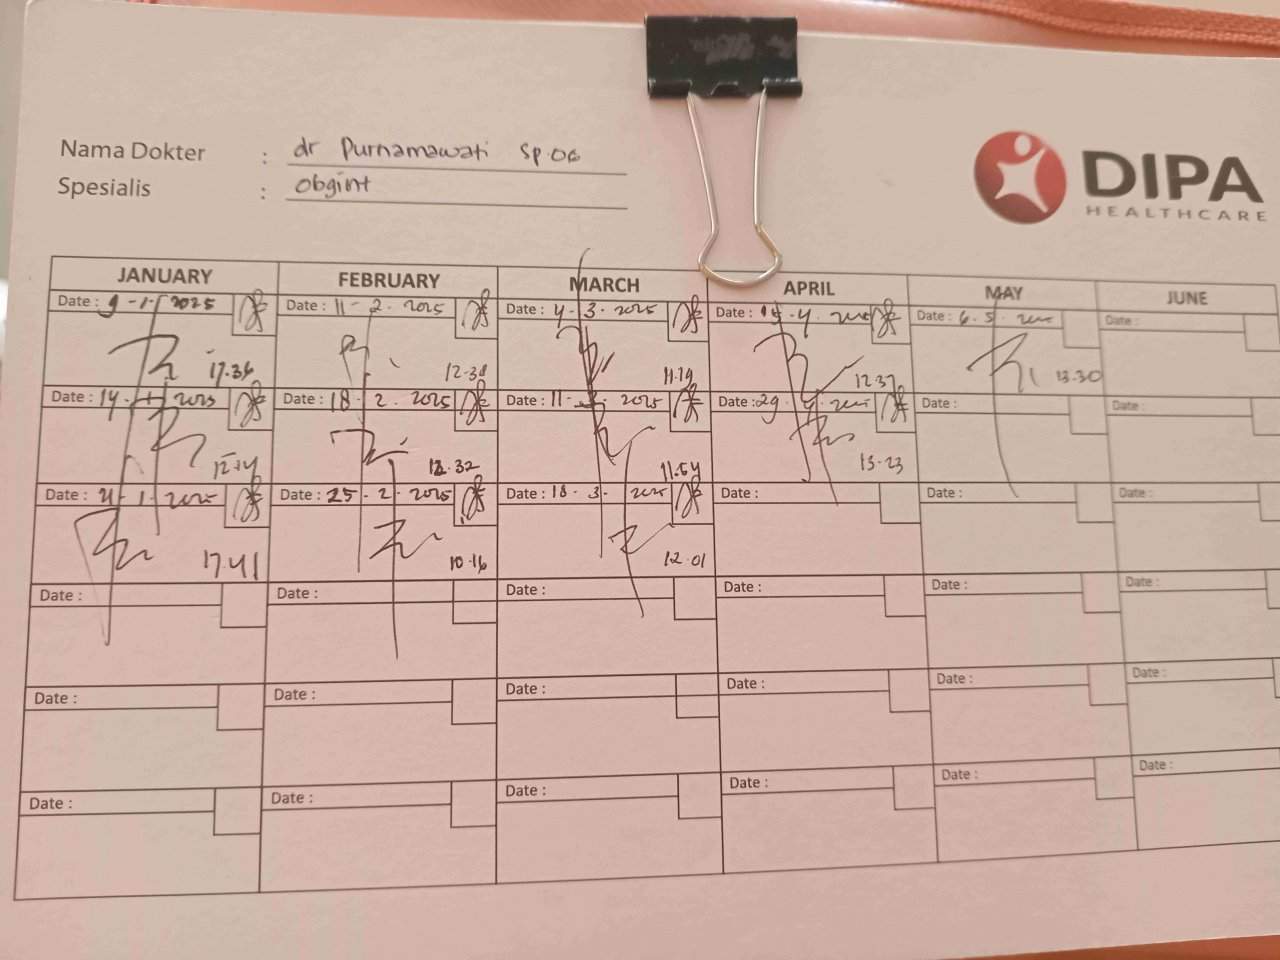 Nama Dokter : dr Purnamawati Sp.OG
Spesialis : Obgint
DIPA
HEALTHCARE
JANUARY FEBRUARY MARCH APRIL MAY JUNE
Date : 9-1-2025 Date : 11-2-2025 Date : 4-3-2025 Date : 15-4- Date : 6.5. Date :
17.36 12.38 11.19 12.37 13.30
Date : 14-1-2025 Date : 18-2-2025 Date : 11-3-2025 Date : 29-4- Date : Date :
12.14 12.32 11.54 13.23
Date : 21-1-2025 Date : 25-2-2025 Date : 18-3-2025 Date : Date : Date :
17.41 10.16 12.01
Date : Date : Date : Date : Date : Date :
Date : Date : Date : Date : Date : Date :
Date : Date : Date : Date : Date : Date :